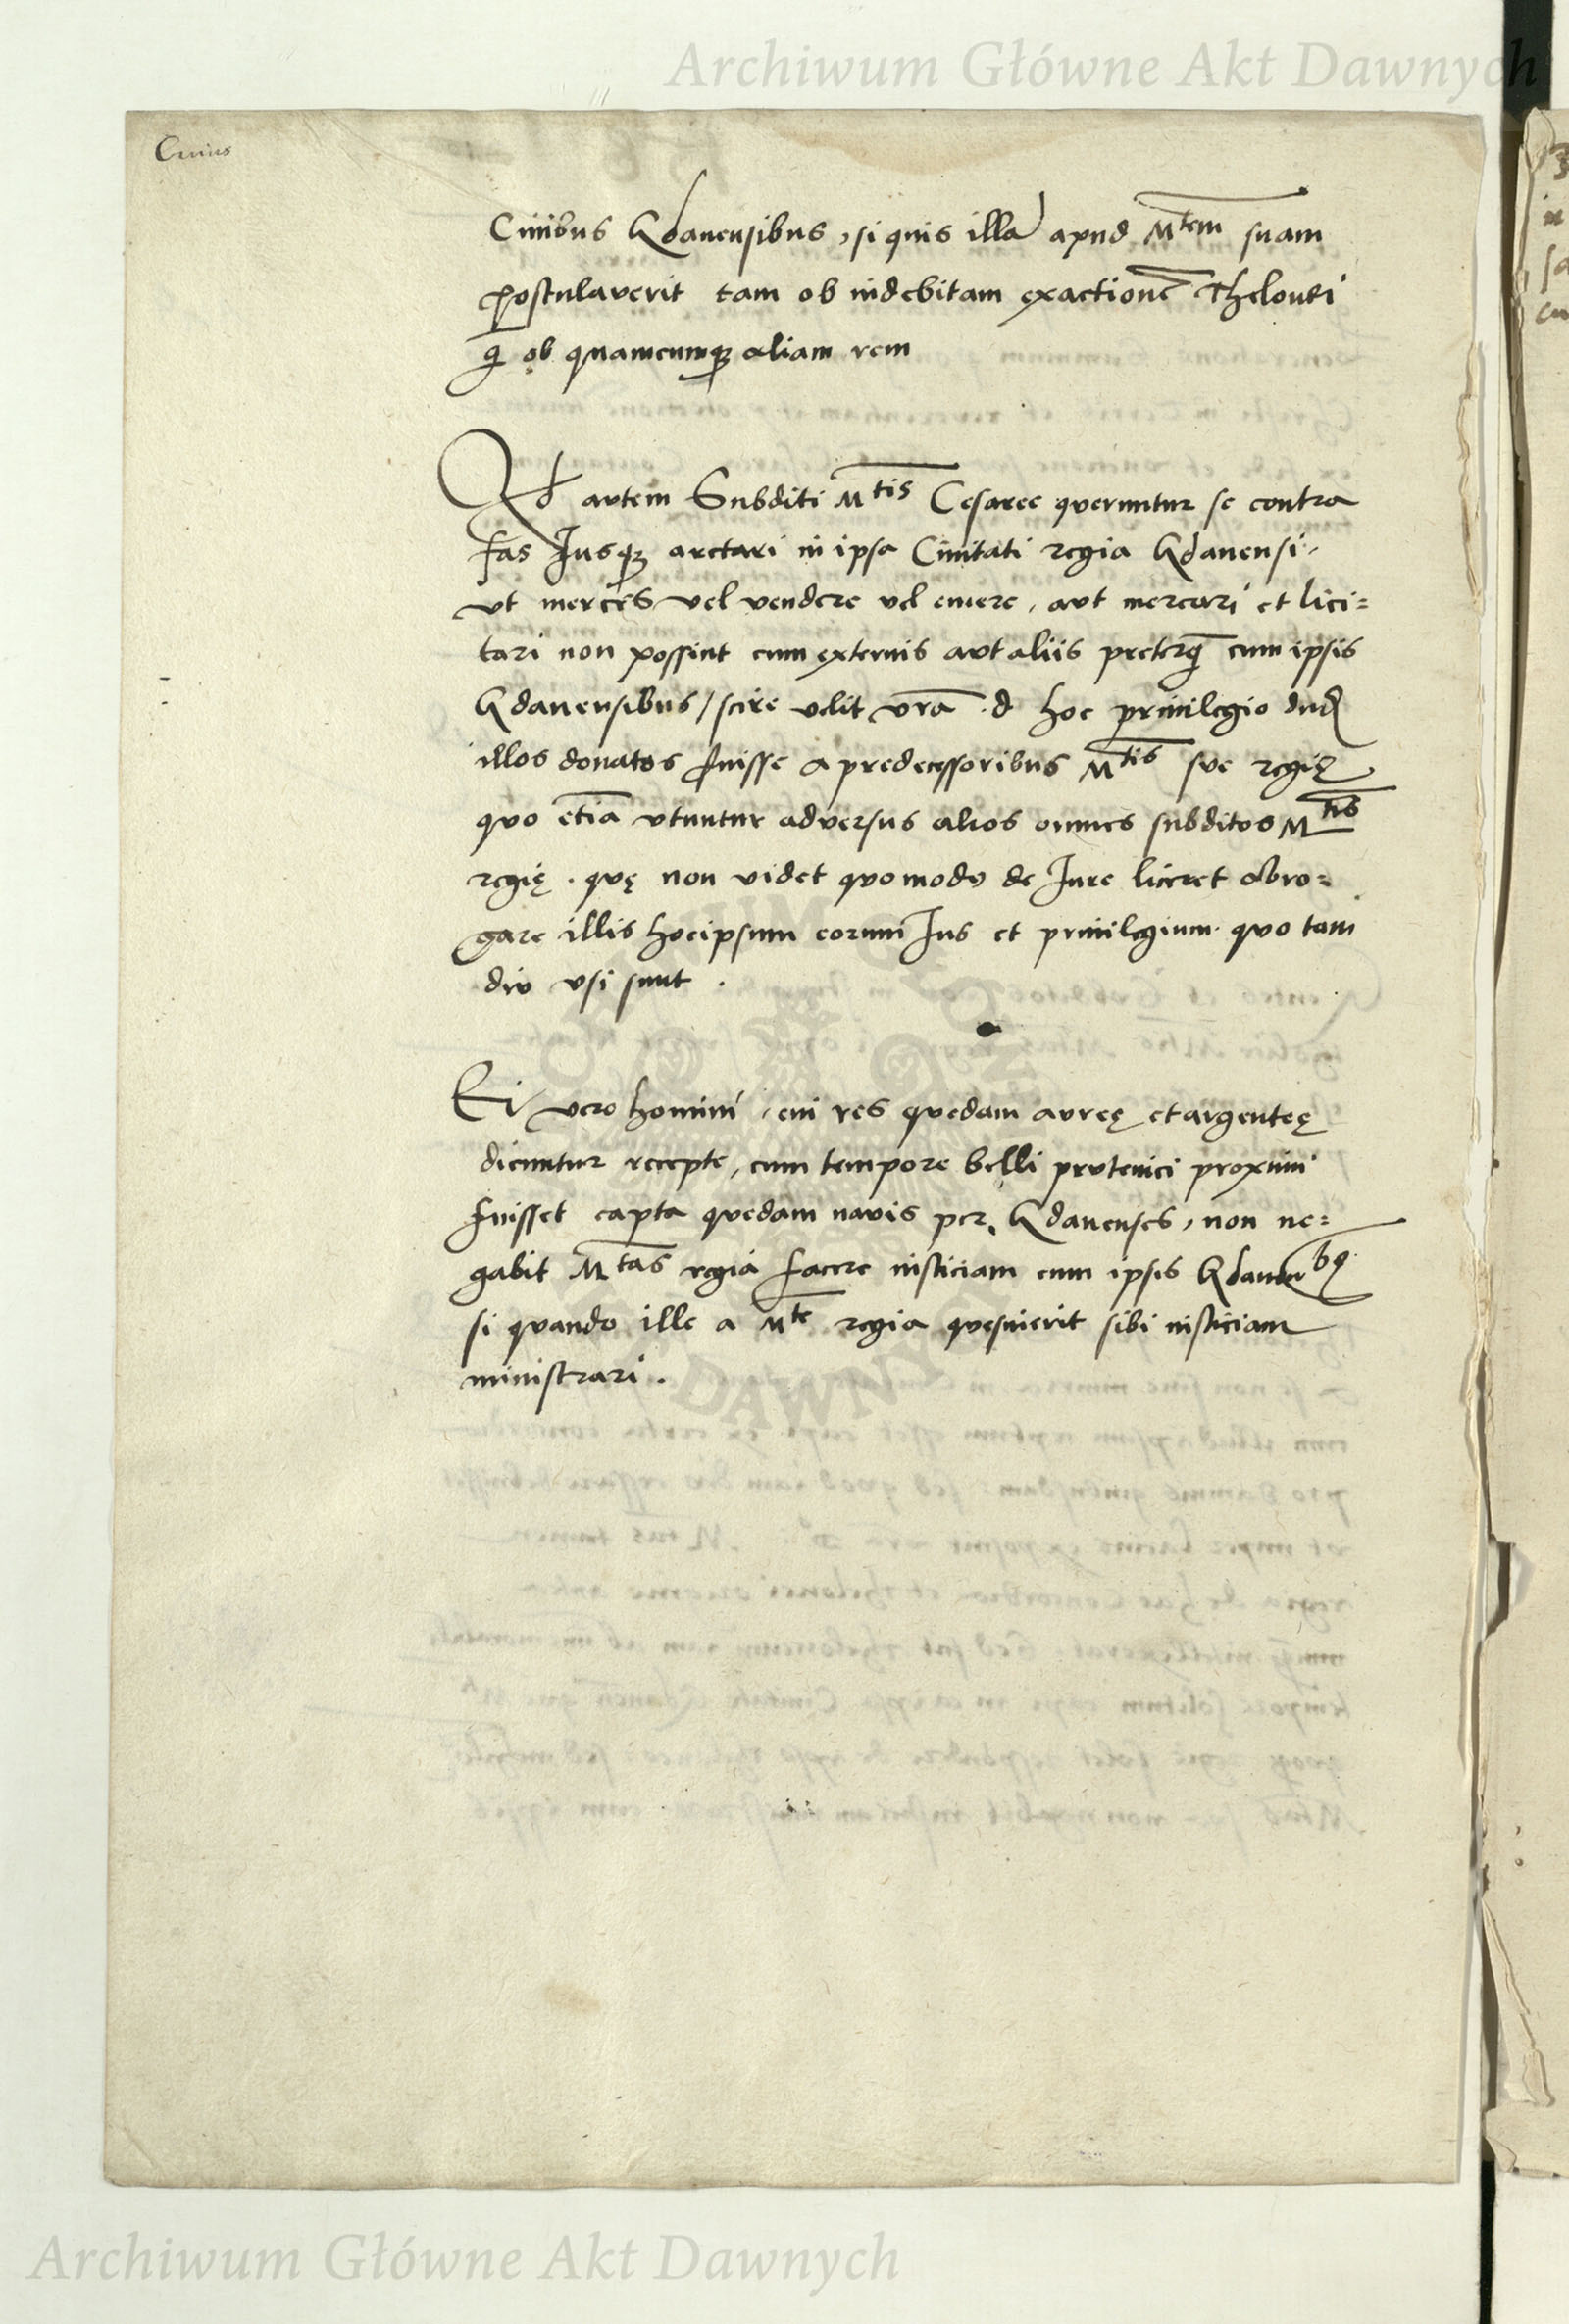 Archiwum Główne Akt Dawnych
Civius
Civibus Gdanensibus, si quis illā apud M^tem suam
postulaverit tam ob indebitam exactionē Thelonei
q̃ ob quamcumq̃ aliam rem
Qd autem Subditi M^tis Cesaree queruntur se contra
fas Jusq̃ arctari in ipsa Civitati regia Gdanensi,
ut merces vel vendere vel emere, aut mercari et lici=
tari non possint cum externis aut aliis preterq̃ cum ipsis
Gdanensibus / scire velit vrā d hoc privilegio dud
illos donatos fuisse a predecessoribus M^tis sue regię
quo etiā utuntur adversus alios omnes subditos M^tis
regię. quę non videt quomodo de Jure liceret abro=
gare illis hocipsum eorum Jus et privilegium quo tam
diu usi sunt.
Ei vero homini, cui res quedam aureę et argenteę
dicuntur recepte, cum tempore belli prutenici proximi
fuisset capta quedam navis per Gdanenses, non ne=
gabit M^tas regia facere iusticiam cum ipsis Gdanen^bq
si quando ille a M^te regia quesiverit sibi iusticiam
ministrari.
Archiwum Główne Akt Dawnych